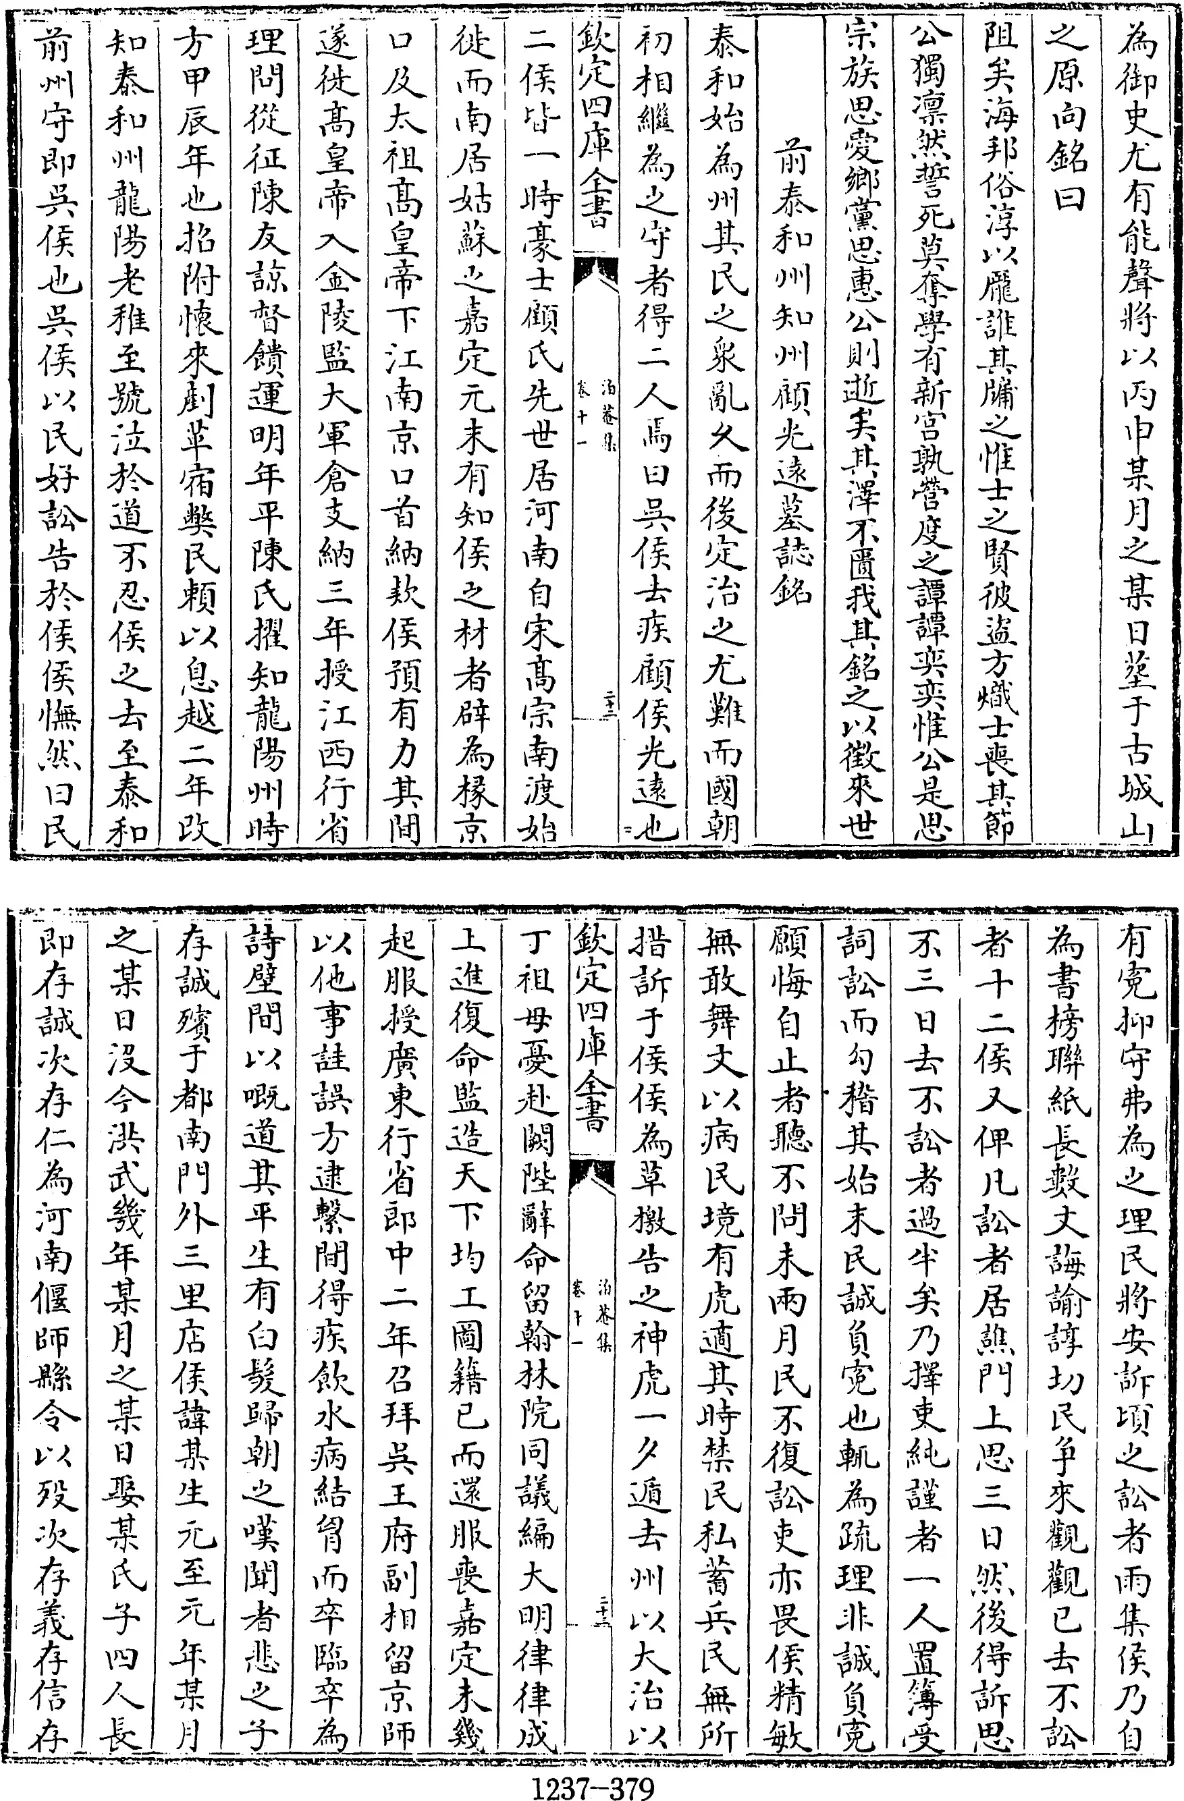 為御史尤有能聲將以丙申某月之某日塟于古城山
之原向銘曰
阻矣海邦俗淳以厖誰其牖之惟士之賢彼盗方熾士喪其節
公獨凛然誓死莫奪學有新宫孰營度之譚譚奕奕惟公是思
宗族思愛鄉黨思惠公則逝矣其澤不匱我其銘之以徴來世
前泰和州知州顧光逺墓誌銘
泰和始為州其民之衆亂久而後定治之尤難而國朝
初相繼為之守者得二人焉曰吳侯去疾顧侯光逺也
欽定四庫全書
泊菴集
卷十一
二十二
二侯皆一時豪士顧氏先世居河南自宋髙宗南渡始
徙而南居姑蘇之嘉定元末有知侯之材者辟為椽京
口及太祖髙皇帝下江南京口首納欵侯預有力其間
遂徙髙皇帝入金陵監大軍倉支納三年授江西行省
理問從征陳友諒督饋運明年平陳氏擢知龍陽州時
方甲辰年也招附懐來剷革宿獘民頼以息越二年改
知泰和州龍陽老稚至號泣於道不忍侯之去至泰和
前州守即吳侯也吳侯以民好訟告於侯侯憮然曰民
有寃抑守弗為之理民將安訴頃之訟者雨集侯乃自
為書榜聯紙長數丈誨諭諄切民争來觀觀已去不訟
者十二侯又俾凡訟者居譙門上思三日然後得訴思
不三日去不訟者過半矣乃擇吏純謹者一人置簿受
詞訟而勾稽其始末民誠負寃也輒為疏理非誠負寃
願悔自止者聽不問未兩月民不復訟吏亦畏侯精敏
無敢舞文以病民境有虎適其時禁民私蓄兵民無所
措訴于侯侯為草檄告之神虎一夕遁去州以大治以
欽定四庫全書
泊菴集
卷十一
二十三
丁祖母憂赴闕陛辭命留翰林院同議編大明律律成
上進復命監造天下均工圖籍已而還服喪嘉定未幾
起服授廣東行省郎中二年召拜吳王府副相留京師
以他事詿誤方逮繫間得疾飲水病結胷而卒臨卒為
詩壁間以嘅道其平生有白髮歸朝之嘆聞者悲之子
存誠殯于都南門外三里店侯諱某生元至元年某月
之某日沒今洪武幾年某月之某日娶某氏子四人長
即存誠次存仁為河南偃師縣令以殁次存義存信存
1237—379